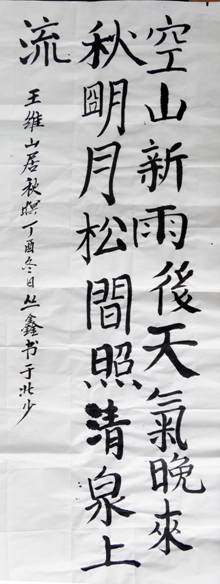 空山新雨後天氣晚來
秋明月松間照清泉上
流
王維山居秋暝丁酉冬日丛鑫书于北少